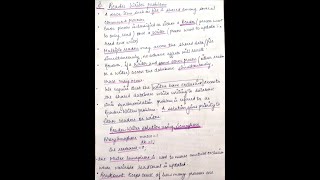 Reader Writer Problem
A data item such as file is shared among several
concurrent process.
Each process is identified as either a Reader (process want
to only read) and a Writer (process want to update ie
read and write)
Multiple readers may access the shared data/file
simultaneously, no adverse effects will result
However, if a writer and some other process (either reader
or a writer) access the database simultaneously
chaos may occur
We require that the writers have exclusive access to
the shared database while writing to database
this synchronization problem is referred to as
Reader-Writer problem. A solution gives priority to
Reader Writer solution using semaphore
Semaphore mutex = 1
wrt = 1
int readcount = 0
Mutex Semaphore is used to ensure mutual exclusion
when variable readcount is updated.
Readcount keeps count of how many process are